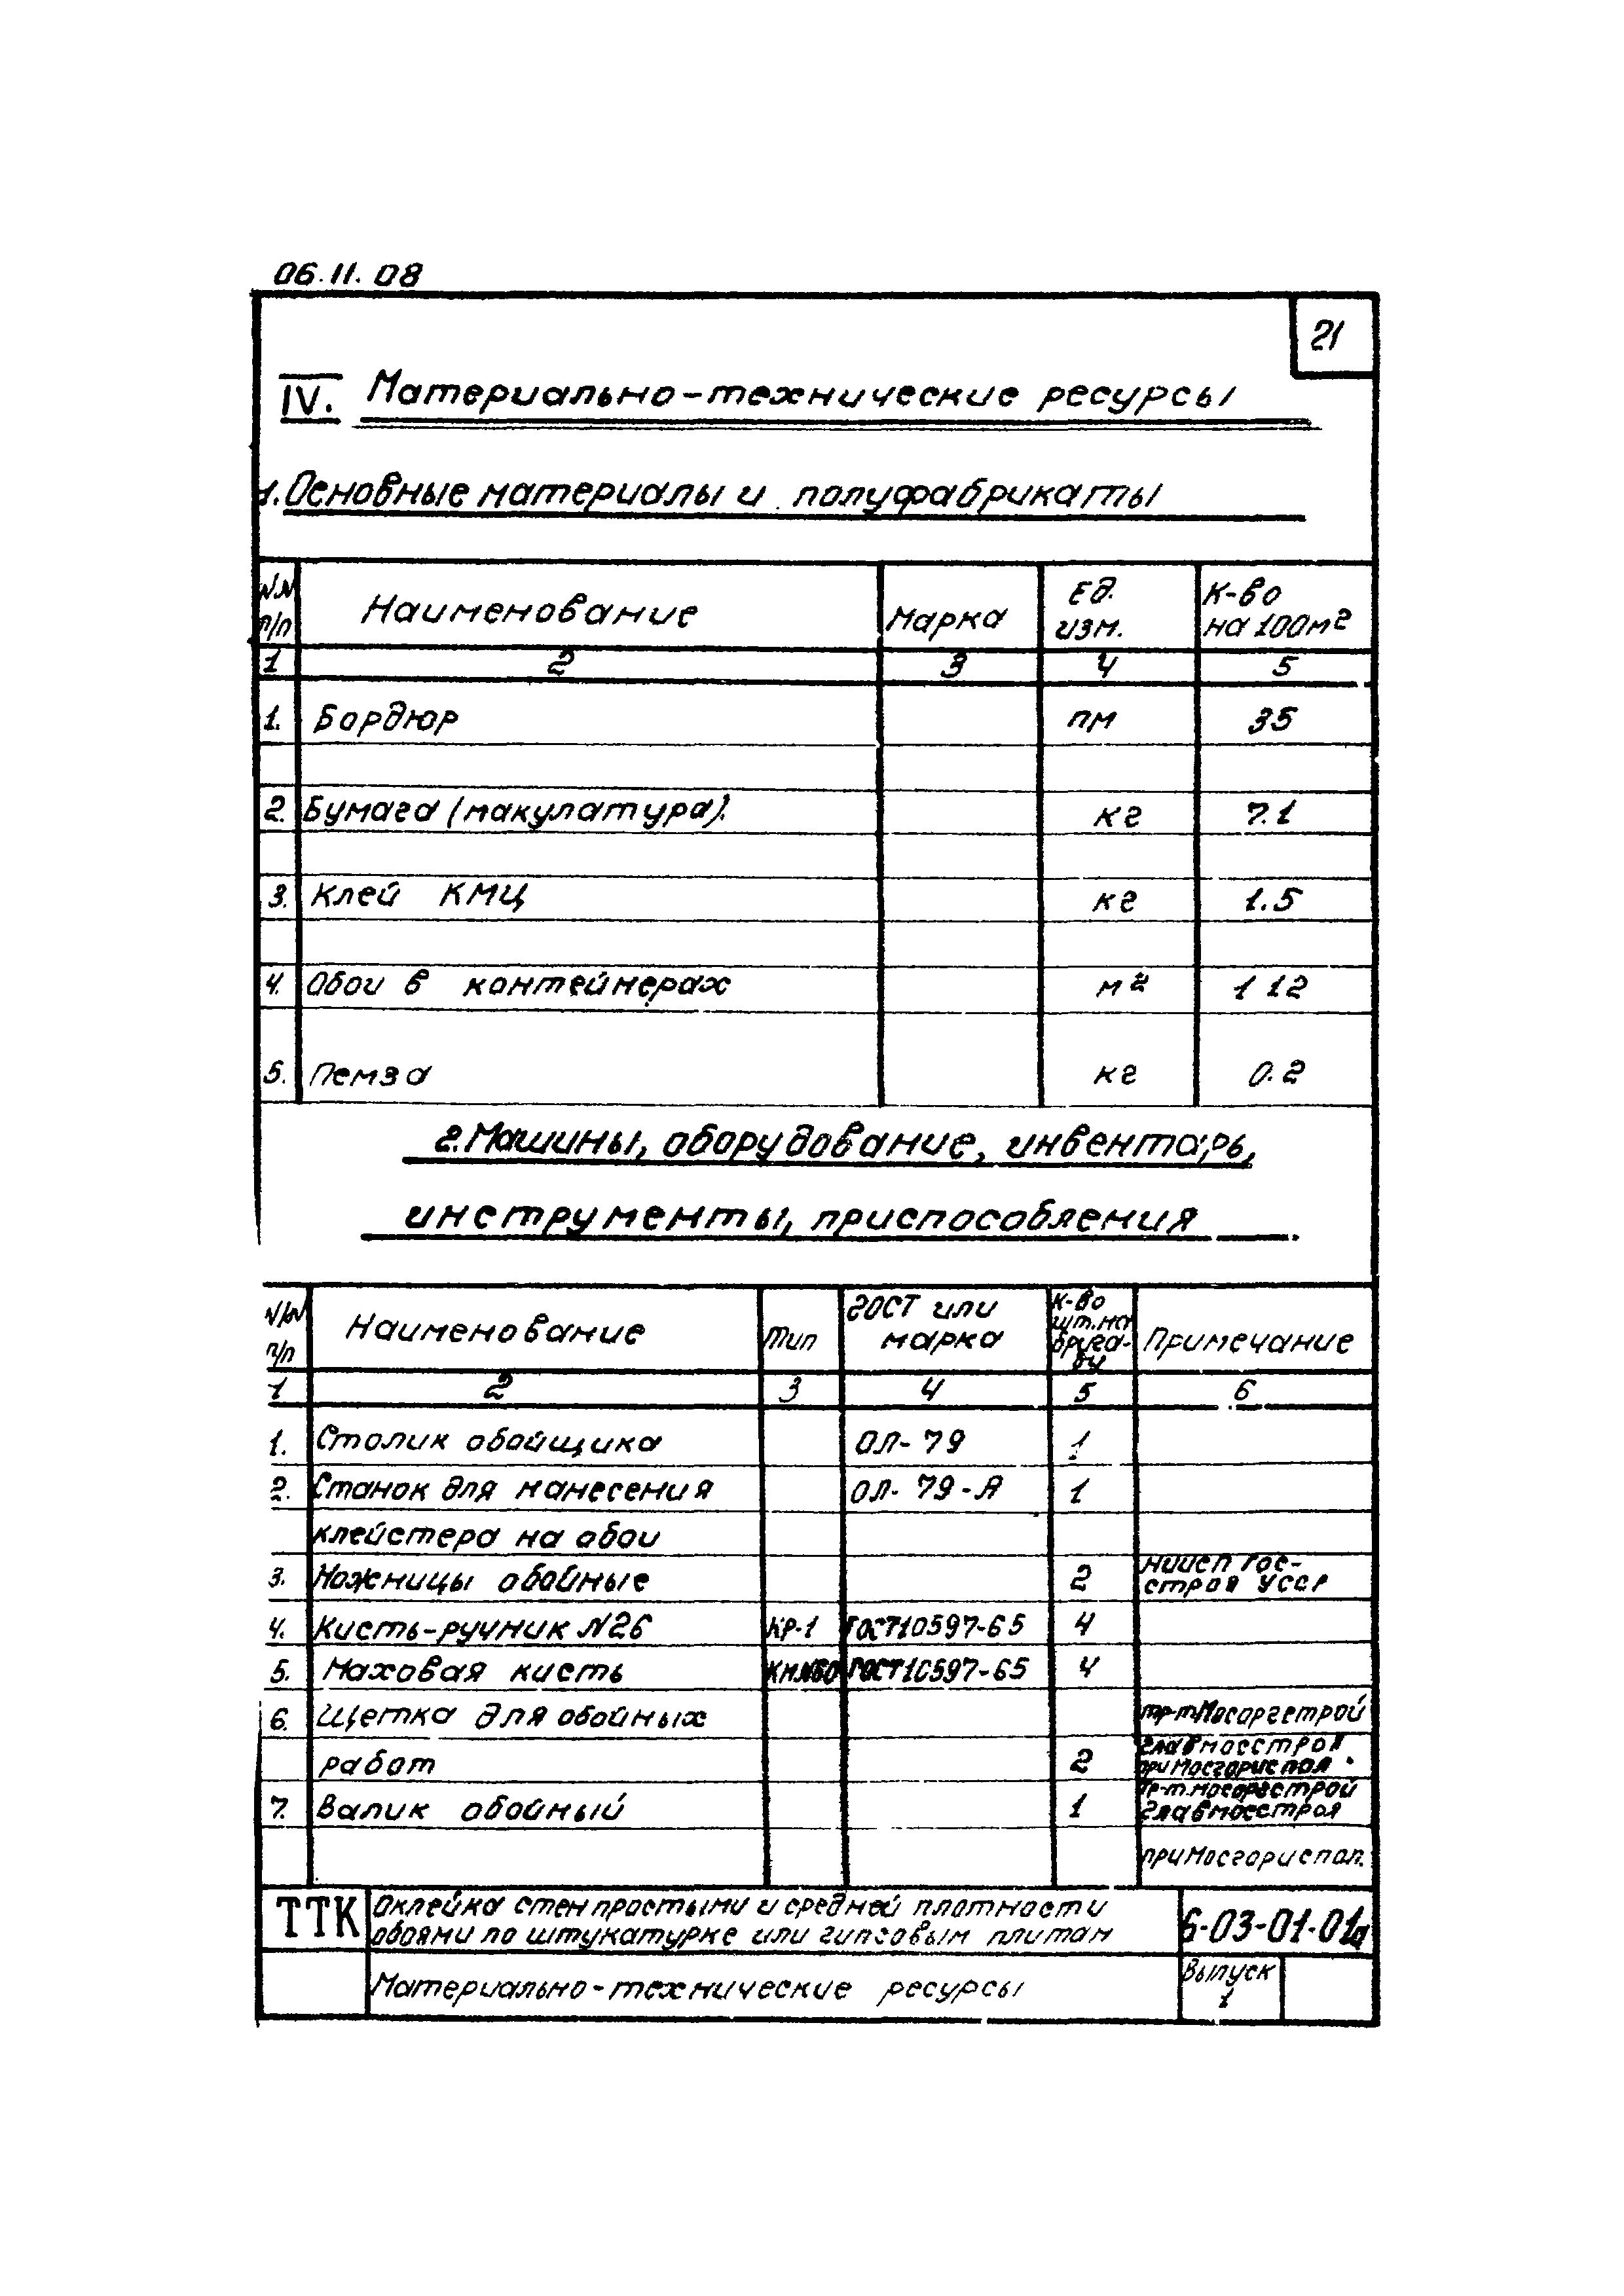 06.11.08
21
IV. Материально-технические ресурсы
1. Основные материалы и полуфабрикаты
N.N п/п Наименование Марка Ед. изм. К-во на 100м²
1 2 3 4 5
1. Бордюр пм 35
2. Бумага (макулатура). кг 7.1
3. Клей КМЦ кг 1.5
4. Обои в контейнерах м² 112
5. Пемза кг 0.2
2. Машины, оборудование, инвентарь,
инструменты, приспособления
N/N п/п Наименование Тип ГОСТ или марка К-во шт. на бригаду Примечание
1 2 3 4 5 6
1. Столик обойщика ОЛ-79 1
2. Станок для нанесения ОЛ-79-А 1
клейстера на обои
3. Ножницы обойные 2 НИИСП Гос-
строя УССР
4. Кисть-ручник N26 КР-1 ГОСТ10597-65 4
5. Маховая кисть ГОСТ10597-65 4
6. Щетка для обойных тр-т Мосоргстрой
Главмосстроя
работ 2 при Мосгорисполк.
7. Валик обойный 1 Тр-т. Мосоргстрой
Главмосстроя
при Мосгорисполк.
ТТК Оклейка стен простыми и средней плотности
обоями по штукатурке или гипсовым плитам
6-03-01-01а
Материально-технические ресурсы
Выпуск
1